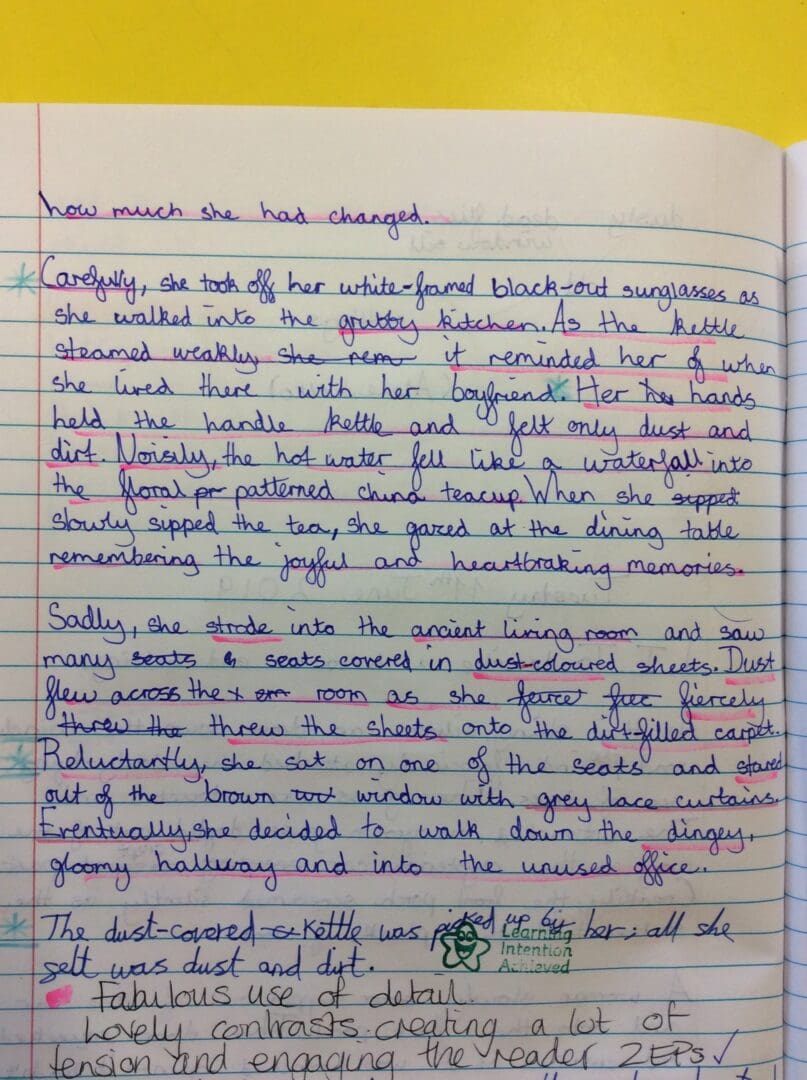 how much she had changed.
Carefully, she took off her white-framed black-out sunglasses as
she walked into the grubby kitchen. As the kettle
steamed weakly she rem it reminded her of when
she lived there with her boyfriend. Her hands
held the handle kettle and felt only dust and
dirt. Noisily, the hot water fell like a waterfall into
the floral pr patterned china teacup. When she sipped
slowly sipped the tea, she gazed at the dining table
remembering the joyful and heartbraking memories.
Sadly, she strode into the ancient living room and saw
many seats seats covered in dust-coloured sheets. Dust
flew across the room as she fiercely
threw the threw the sheets onto the dirt-filled carpet.
Reluctantly, she sat on one of the seats and stared
out of the brown window with grey lace curtains.
Eventually, she decided to walk down the dingey,
gloomy hallway and into the unused office.
The dust-covered kettle was picked up by her; all she
felt was dust and dirt.
Learning
Intention
Achieved
Fabulous use of detail.
Lovely contrasts creating a lot of
tension and engaging the reader 2EPs ✓